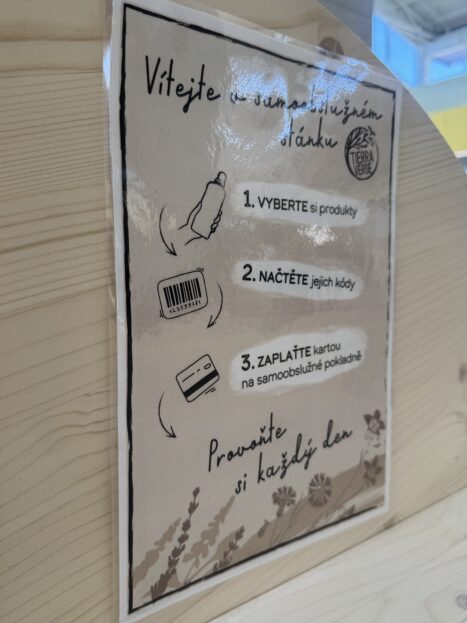 Vítejte v samoobslužném
stánku
TIERRA
VERDE
1. VYBERTE si produkty
2. NAČTĚTE jejich kódy
3. ZAPLAŤTE kartou
na samoobslužné pokladně
Provoňte
si každý den